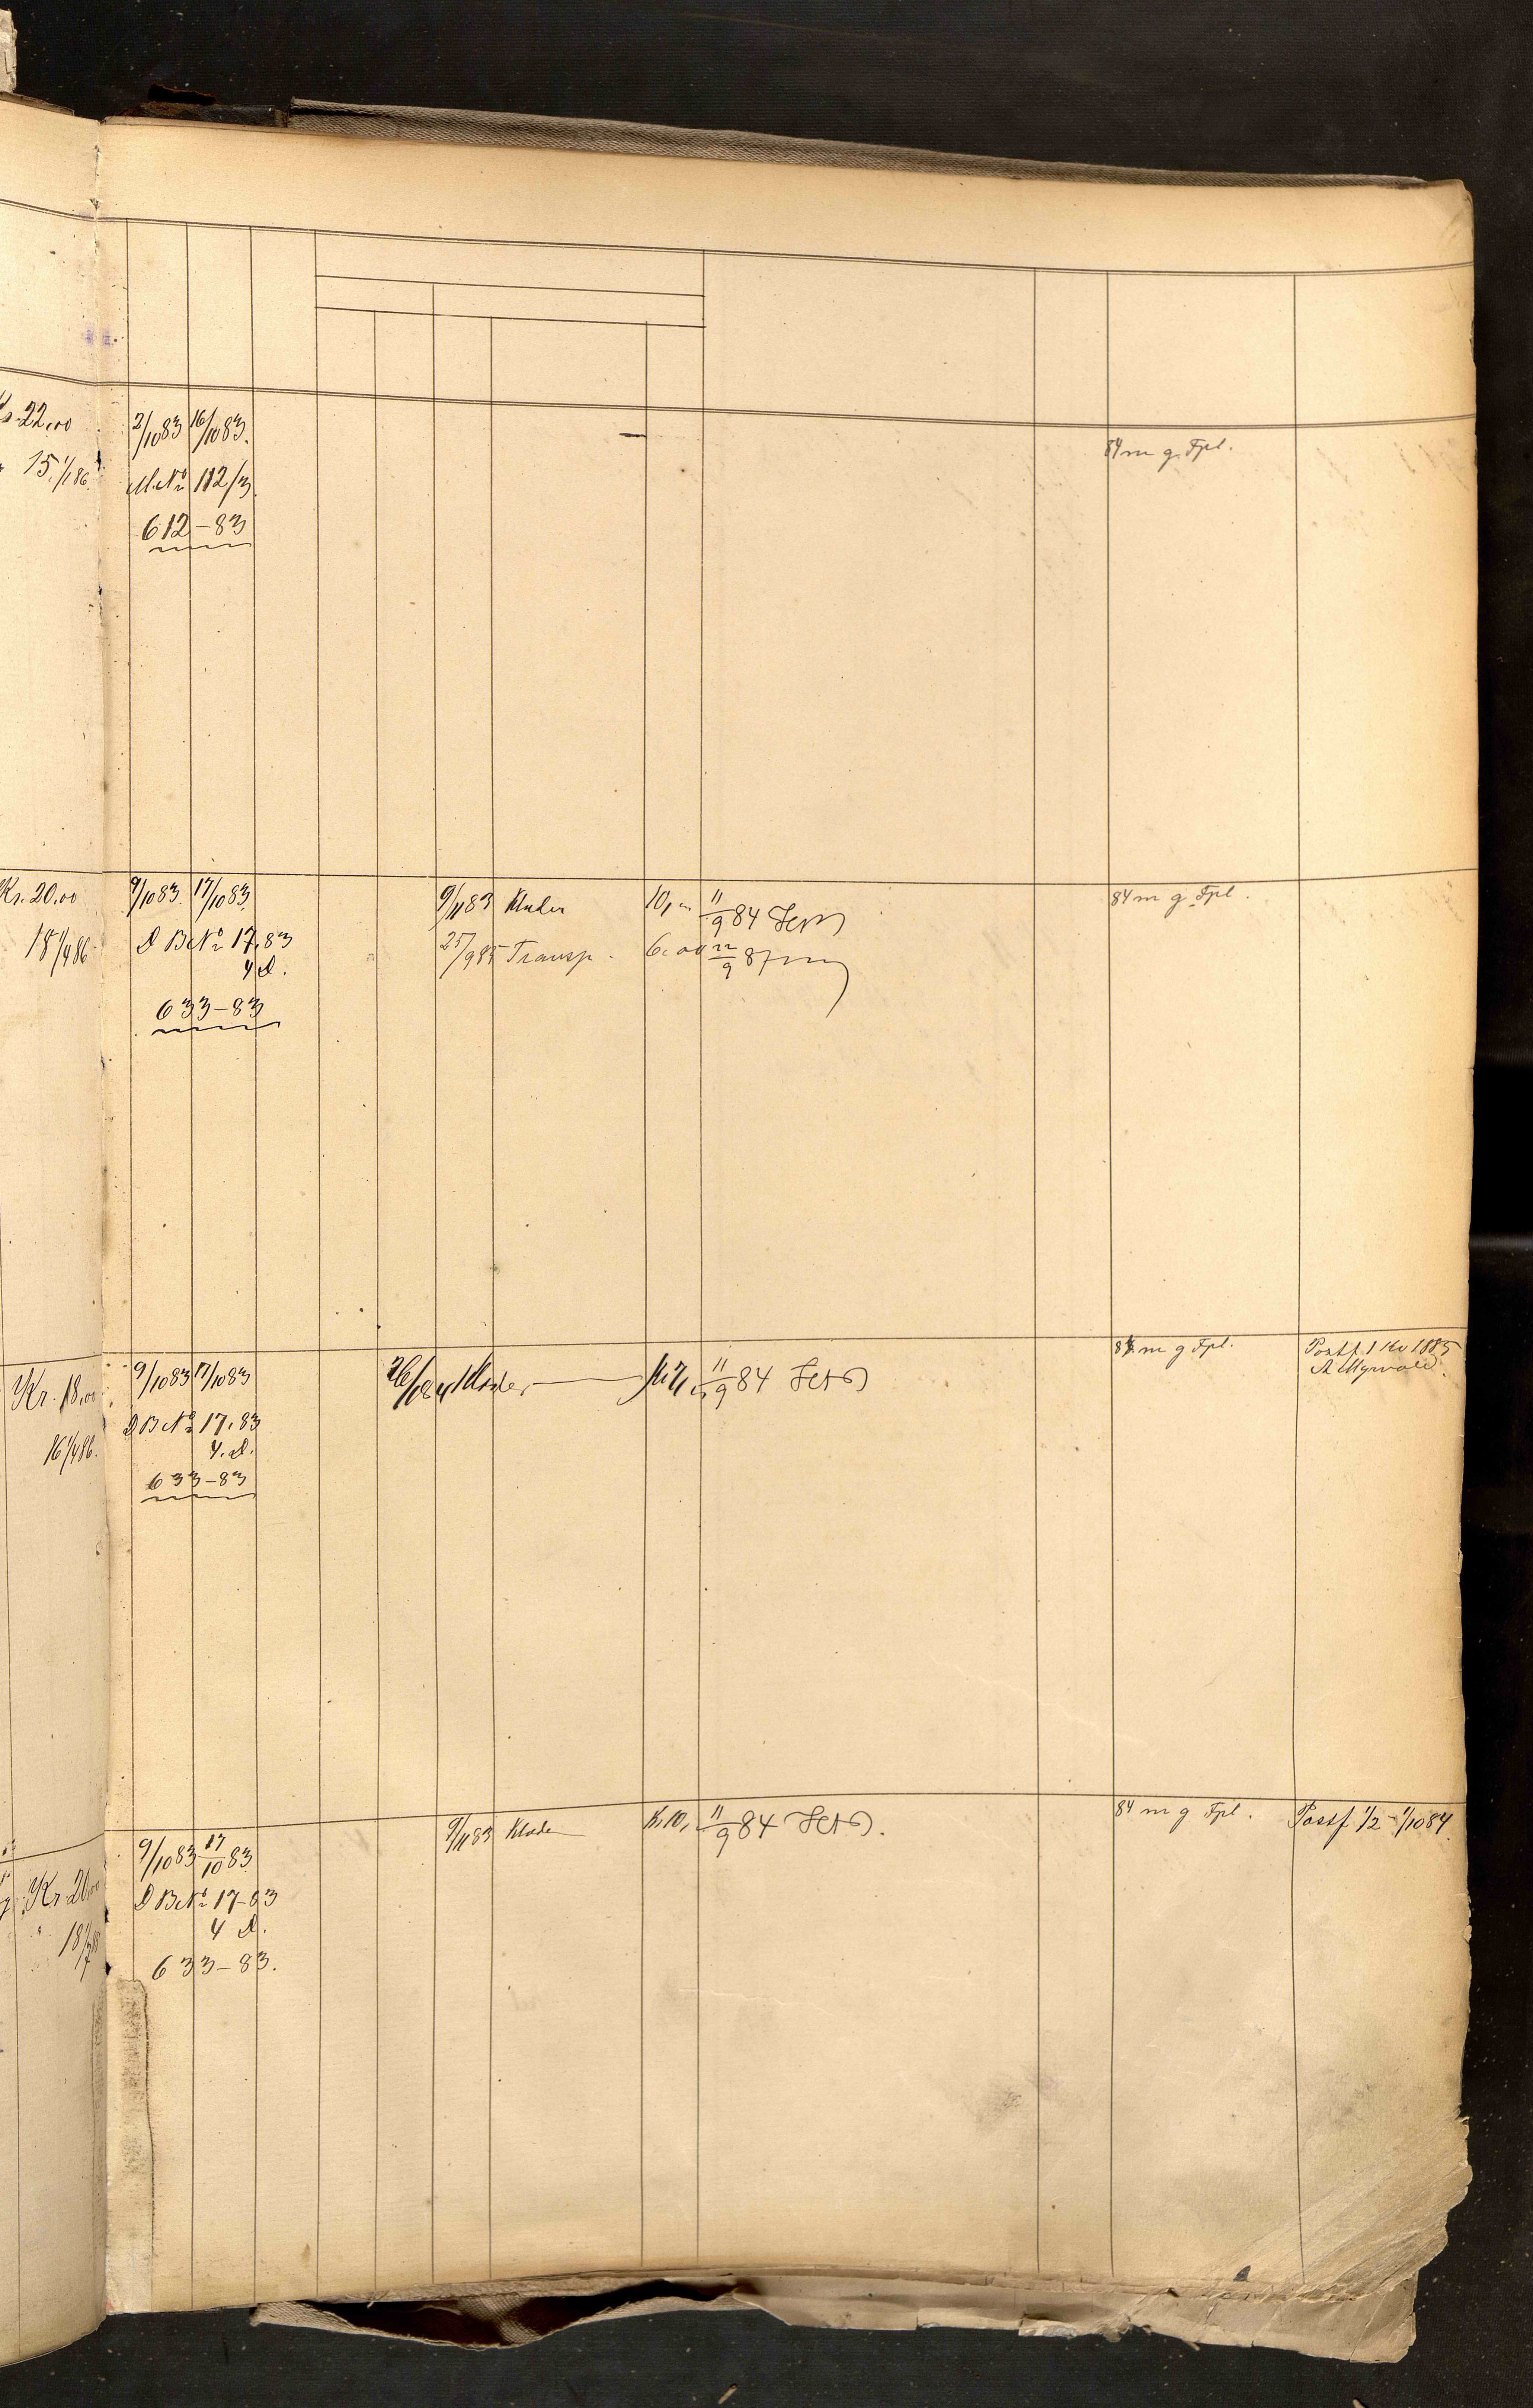 22,00 2/10 83 16/10 83. 84 m g. Fpl.
15. 1/1 86. M. No 112/3.
612-83
Kr. 20,00 9/10 83. 17/10 83. 9/11 83 Klæder 10,- 11/9 84 84 m g. Fpl.
18 1/4 86. D B No 17.83 25/9 85 Transp. 6,00 22/9 87
4 D.
633-83
Kr. 18,00 9/10 83 17/10 83 26/1 84 Klæder 11/9 84 84 m g Fpl. Postf. 1 Kv 1885
16 1/4 86. D B No 17.83 A Myrvold.
4. D.
633-83
Kr 20,00 9/10 83 17/10 83 9/11 83 Klæder K. 10, 11/9 84 84 m g Fpl. Postf 1/2 - 1/10 84.
18 D B No 17-83
4 D.
633-83.